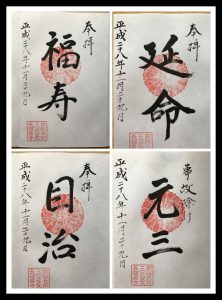 奉拝
福寿
平成二十八年十一月二十九日
奉拝
延命
平成二十八年十一月二十九日
奉拝
目治
平成二十八年十一月二十九日
事故除け
元三
平成二十八年十一月二十九日